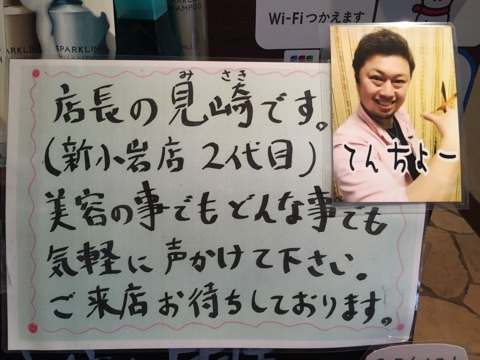 SPARKLIN
SHAMPOO
SPARKLIN
Wi-Fi つかえます
みさき
店長の見崎です。
(新小岩店 2代目)
美容の事でもどんな事でも
気軽に声かけて下さい。
ご来店お待ちしております。
てんちょー